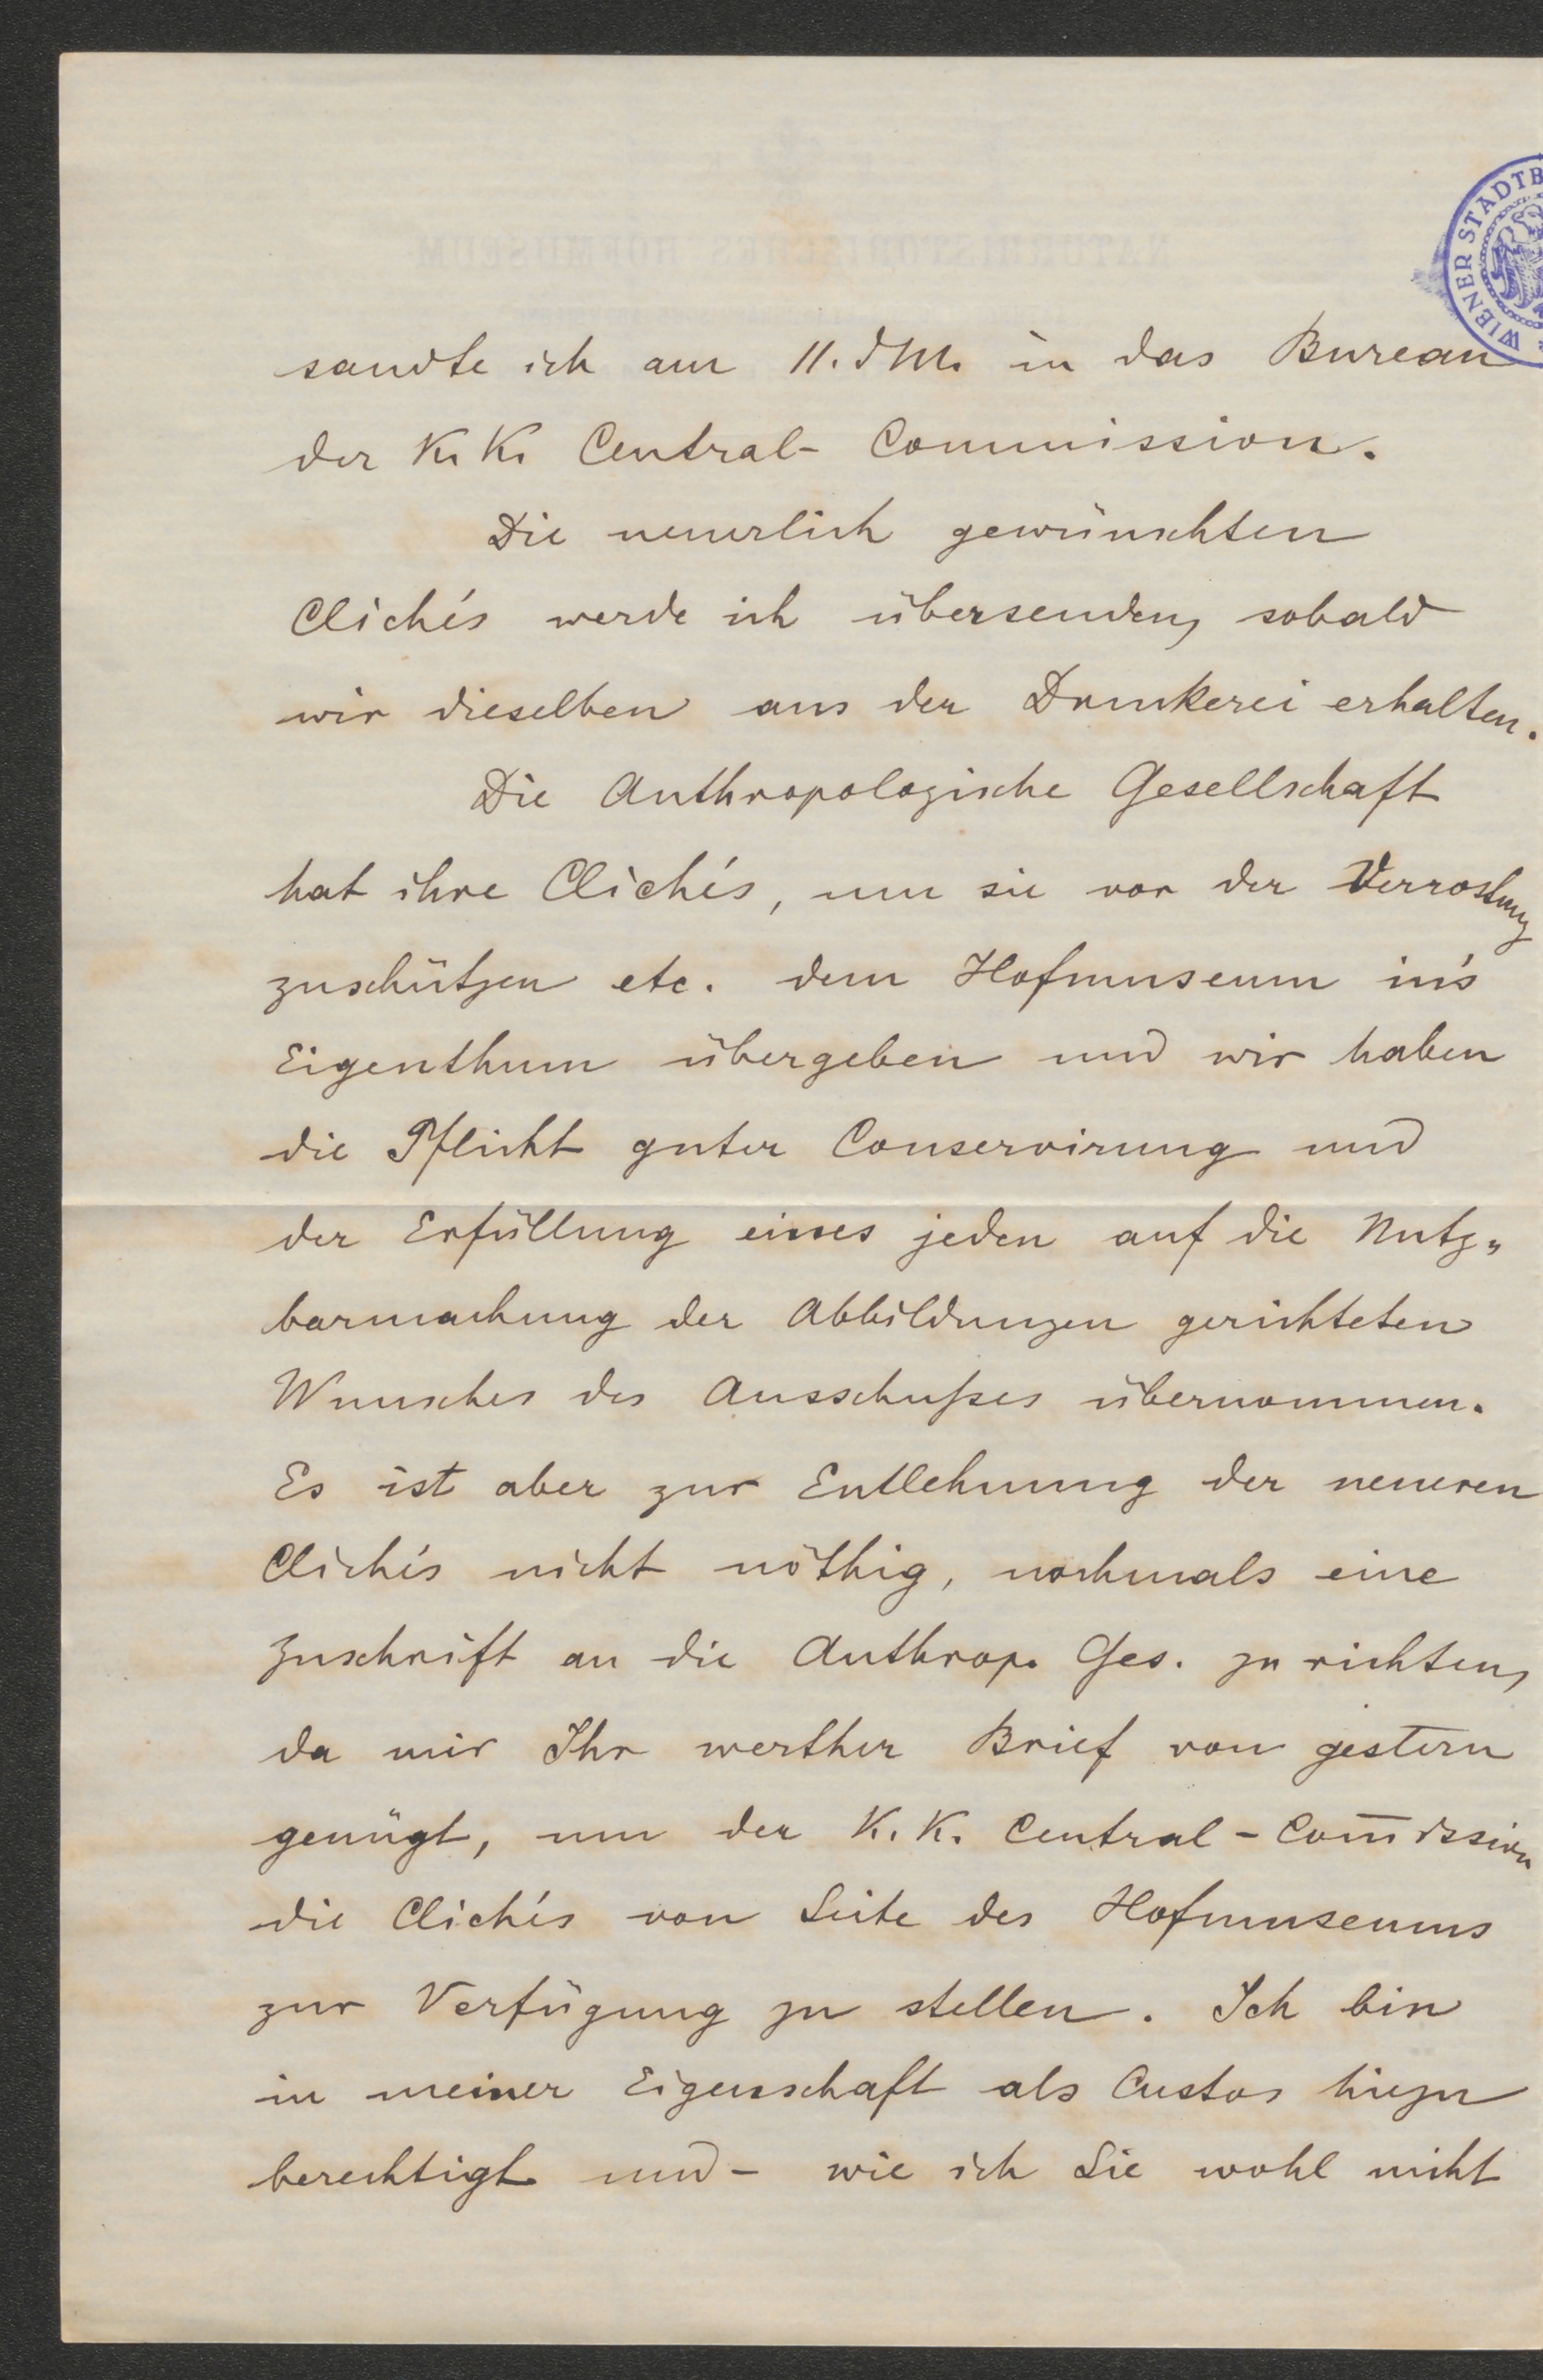 WIENER STADTB
sandte ich am 11. d M. in das Bureau
der K. K. Central- Commission.
Die neuerlich gewünschten
Clichés werde ich übersenden, sobald
wir dieselben aus der Druckerei erhalten.
Die Anthropologische Gesellschaft
hat ihre Clichés, um sie vor der Verrostung
zuschützen etc. dem Hofmuseum in's
Eigenthum übergeben und wir haben
die Pflicht guter Conservirung und
der Erfüllung eines jeden auf die Nutz„
barmachung der Abbildungen gerichteten
Wunsches des Ausschußes übernommen.
Es ist aber zur Entlehnung der neueren
Clichés nicht nöthig, nochmals eine
Zuschrift an die Anthrop. Ges. zu richten,
da mir Ihr werther Brief von gestern
genügt, um der K. K. Central-Com̅ission
die Clichés von Seite des Hofmuseums
zur Verfügung zu stellen. Ich bin
in meiner Eigenschaft als Custos hiezu
berechtigt und - wie ich Sie wohl nicht